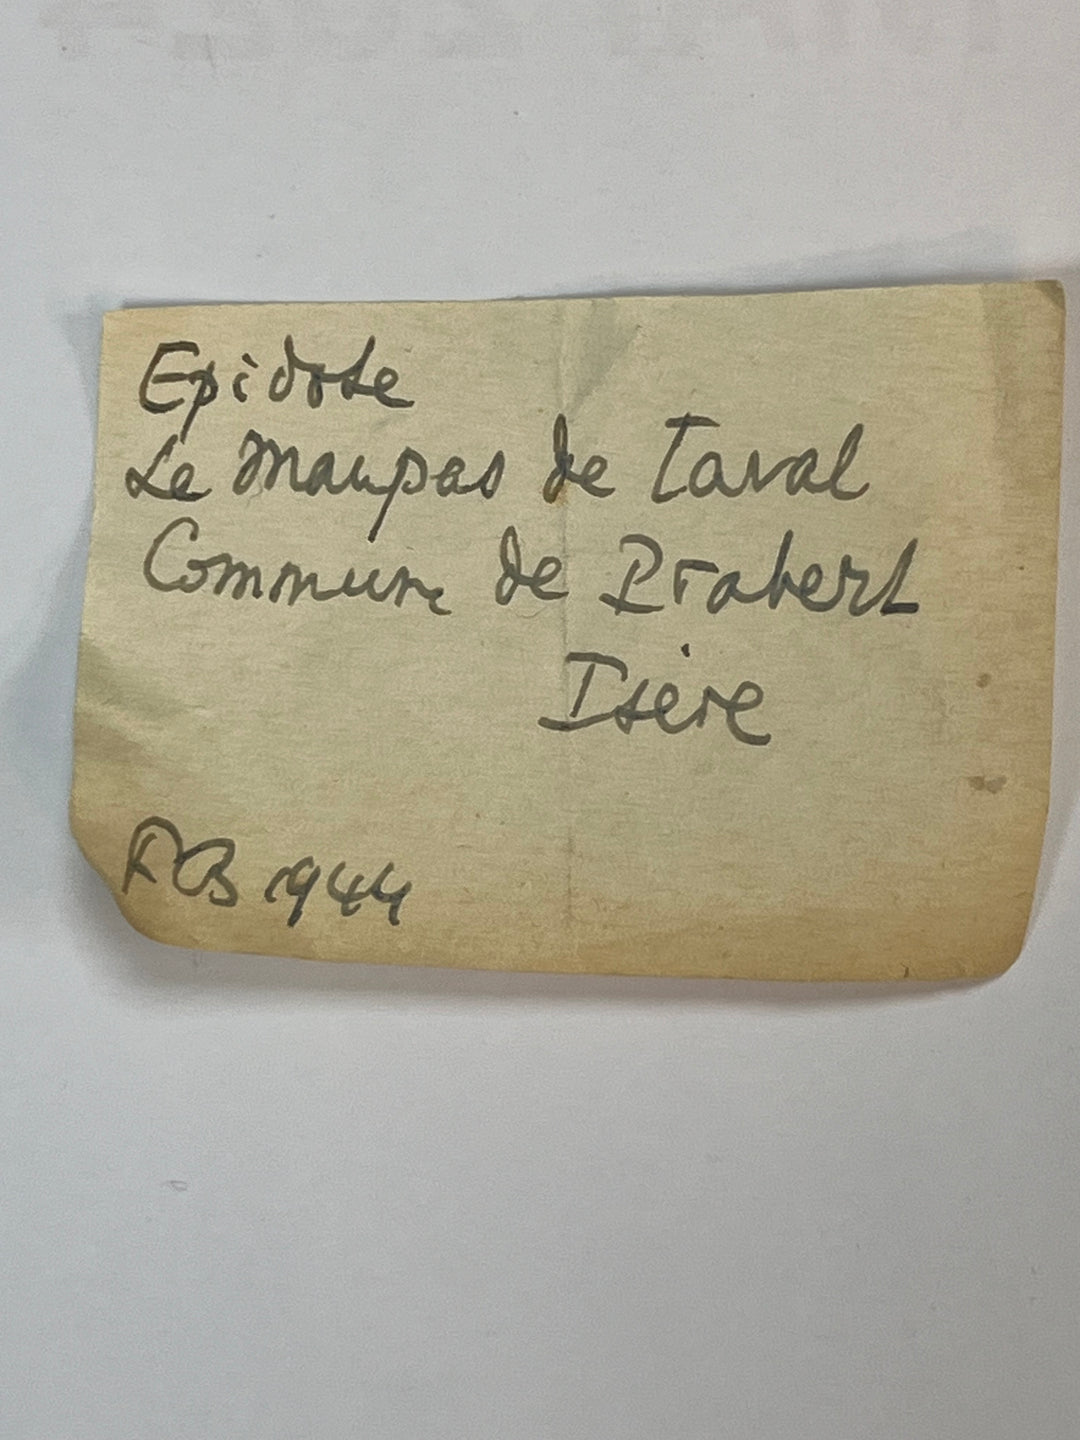 Epidote
Le Maupas de Taval
Commune de Prabert
Isère
1944